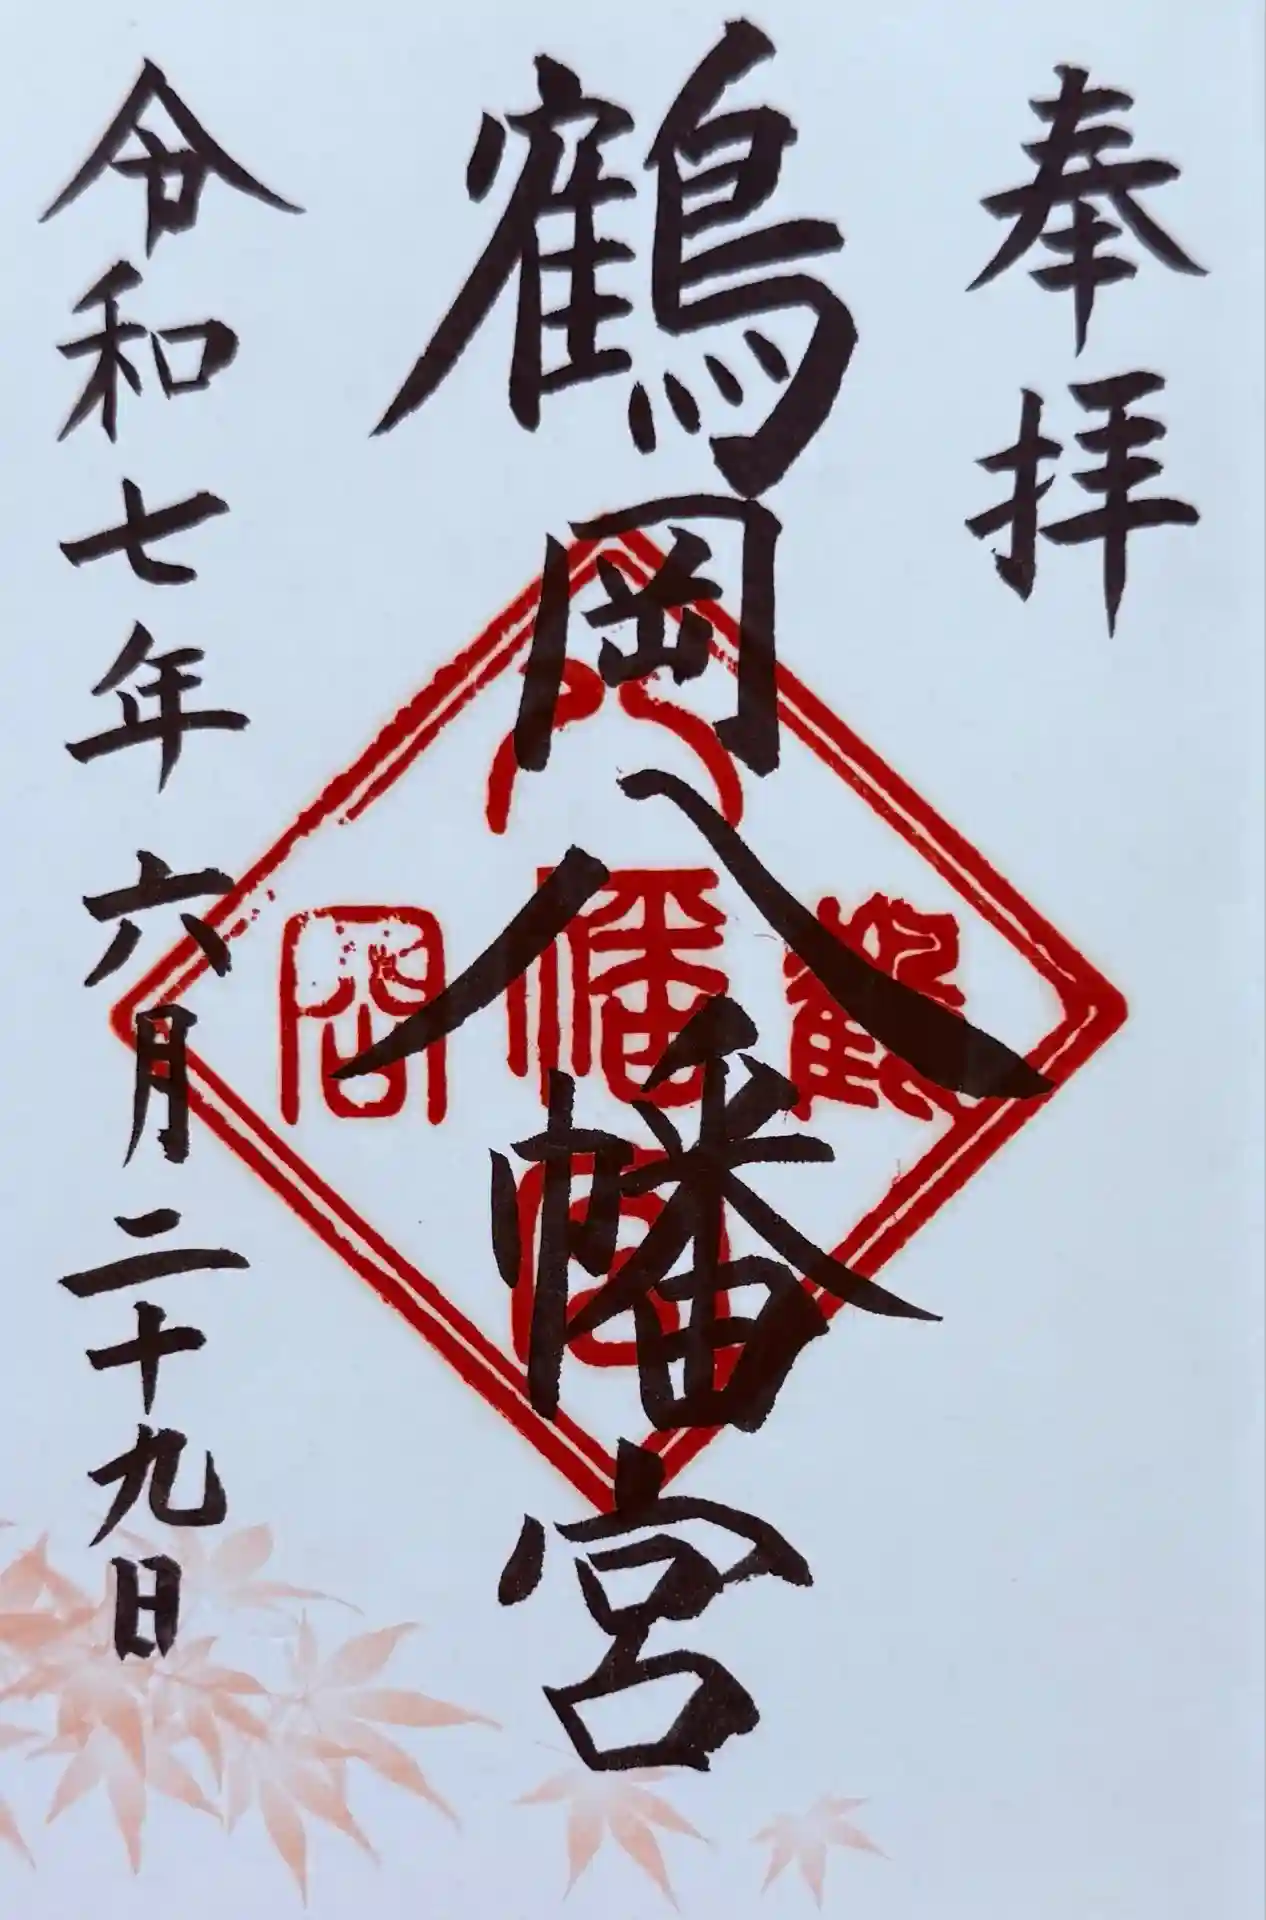 奉拝
鶴岡八幡宮
令和七年六月二十九日
八
鶴幡岡
宮